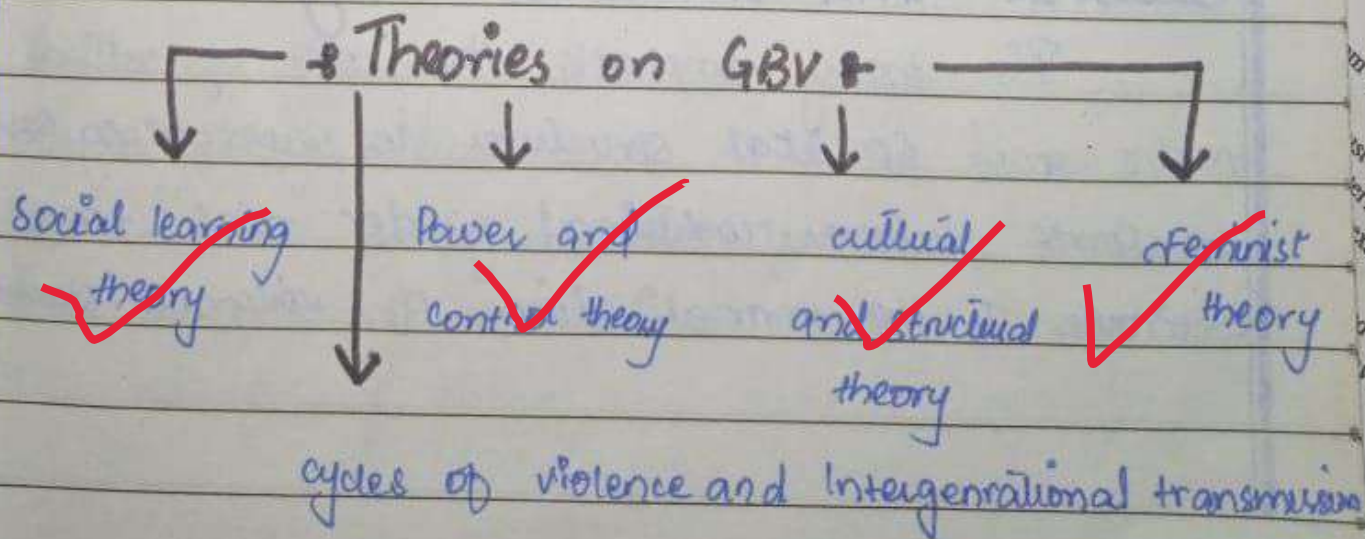 Theories on GBV
Social learning
theory
Power and
control theory
cultural
and structural
theory
Feminist
theory
cycles of violence and Intergenrational transmission